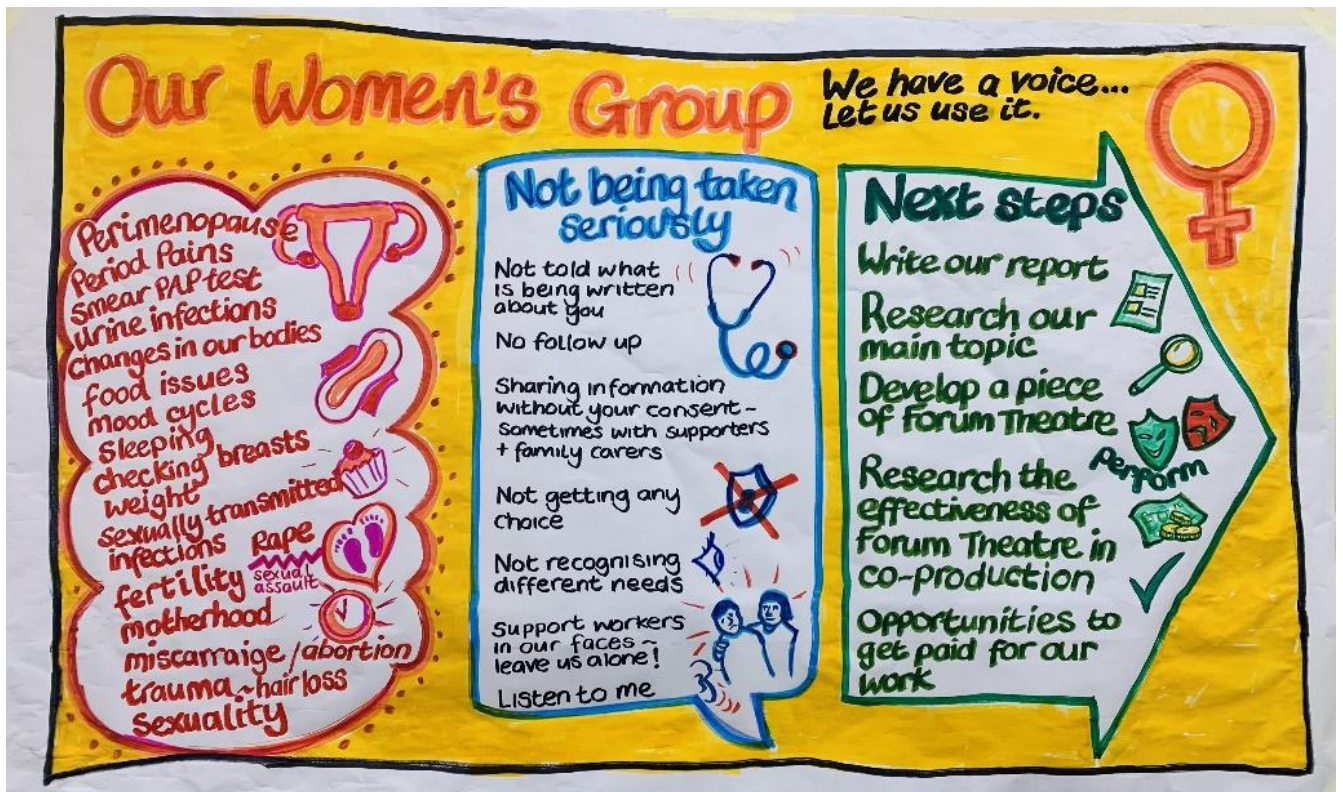 Our Women's Group
We have a voice...
Let us use it.
Perimenopause
Period Pains
Smear PAP test
Urine infections
Changes in our bodies
food issues
Mood cycles
Sleeping
checking breasts
weight
sexually transmitted
infections
Rape
sexual
assault
fertility
motherhood
miscarraige / abortion
trauma ~ hair loss
Sexuality
Not being taken
seriously
Not told what
is being written
about you
No follow up
Sharing information
without your consent ~
Sometimes with supporters
+ family carers
Not getting any
choice
Not recognising
different needs
Support workers
in our faces ~
leave us alone!
Listen to me
Next steps
Write our report
Research our
main topic
Develop a piece
of Forum Theatre
Perform
Research the
effectiveness of
Forum Theatre in
co-production
Opportunities to
get paid for our
work